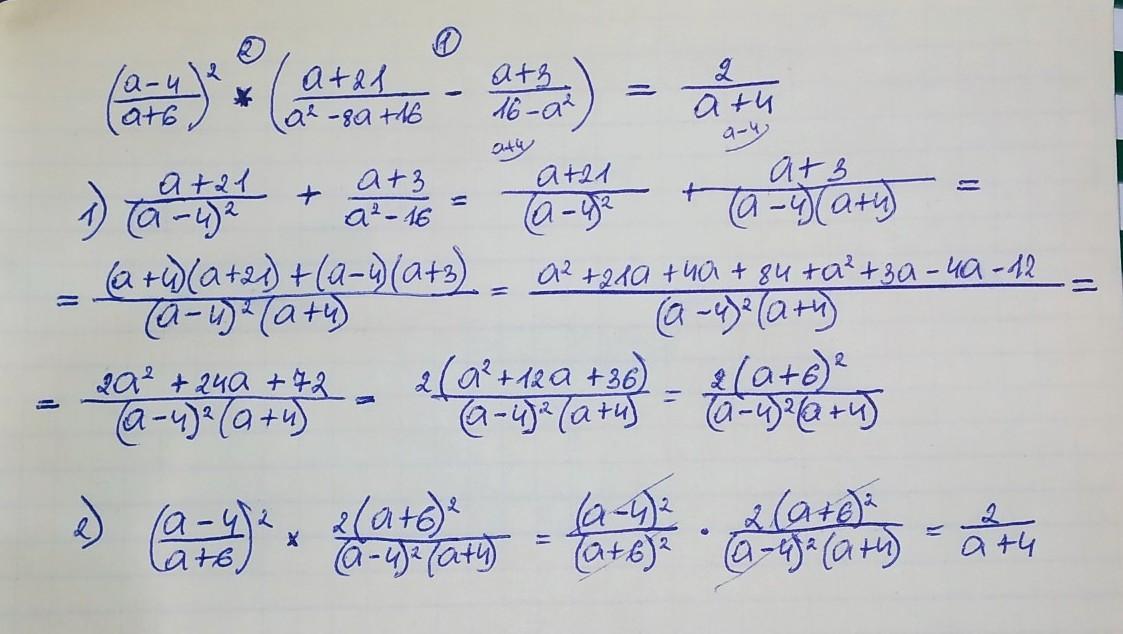 ② ①
((a-4)/(a+6))² * ((a+21)/(a²-8a+16) - (a+3)/(16-a²)) = 2/(a+4)
a+4 a-4
1) (a+21)/(a-4)² + (a+3)/(a²-16) = (a+21)/(a-4)² + (a+3)/((a-4)(a+4)) =
= ((a+4)(a+21)+(a-4)(a+3))/((a-4)²(a+4)) = (a²+21a+4a+84+a²+3a-4a-12)/((a-4)²(a+4)) =
= (2a²+24a+72)/((a-4)²(a+4)) = 2(a²+12a+36)/((a-4)²(a+4)) = 2(a+6)²/((a-4)²(a+4))
2) ((a-4)/(a+6))² × 2(a+6)²/((a-4)²(a+4)) = (a-4)²/(a+6)² · 2(a+6)²/((a-4)²(a+4)) = 2/(a+4)